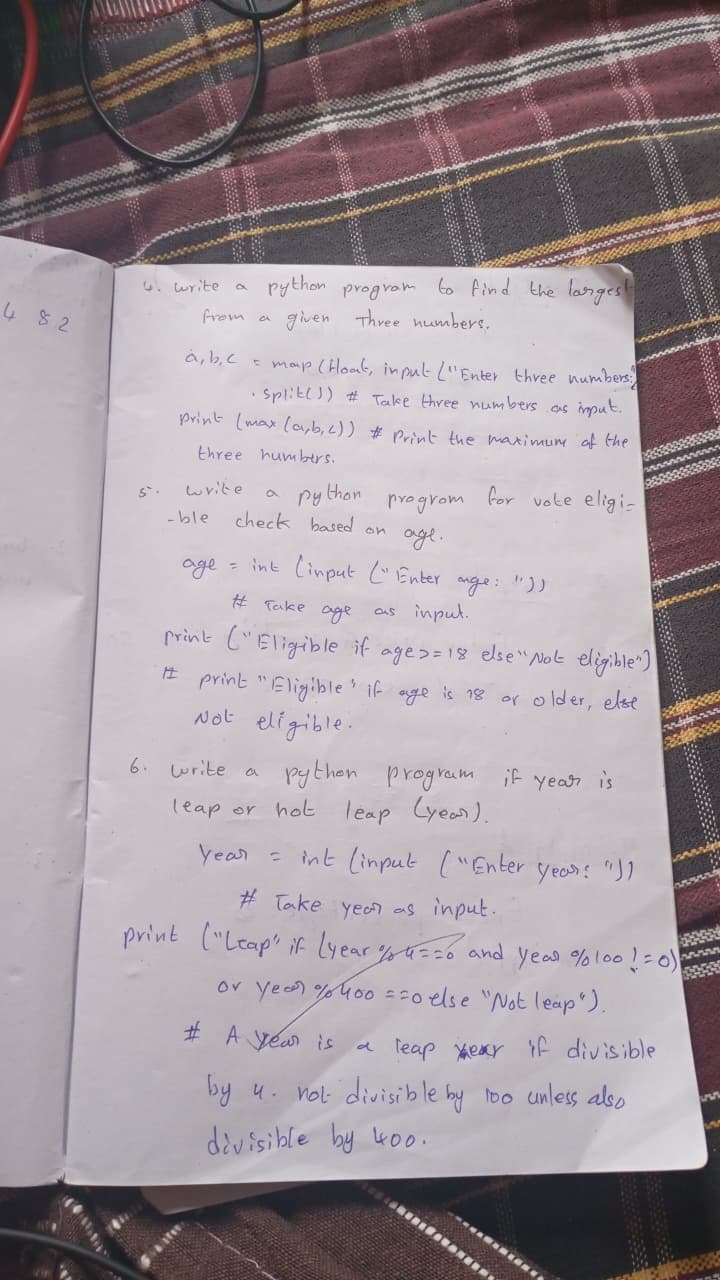 4 82
4. write a python program to find the largest
from a given Three numbers.
a,b,c = map (float, input ("Enter three numbers:
.split()) # Take three numbers as input.
print (max (a,b,c)) # Print the maximum of the
three numbers.
5. write a python program for vote eligi-
-ble check based on age.
age = int (input ("Enter age: "))
# Take age as input.
print ("Eligible if age >= 18 else "Not eligible")
# print "Eligible" if age is 18 or older, else
Not eligible.
6. write a python program if year is
leap or not leap (year).
Year = int (input ("Enter year: "))
# Take year as input.
print ("Leap" if (year % 4 == 0 and year % 100 != 0)
or year % 400 == 0 else "Not leap").
# A year is a leap year if divisible
by 4. not divisible by 100 unless also
divisible by 400.